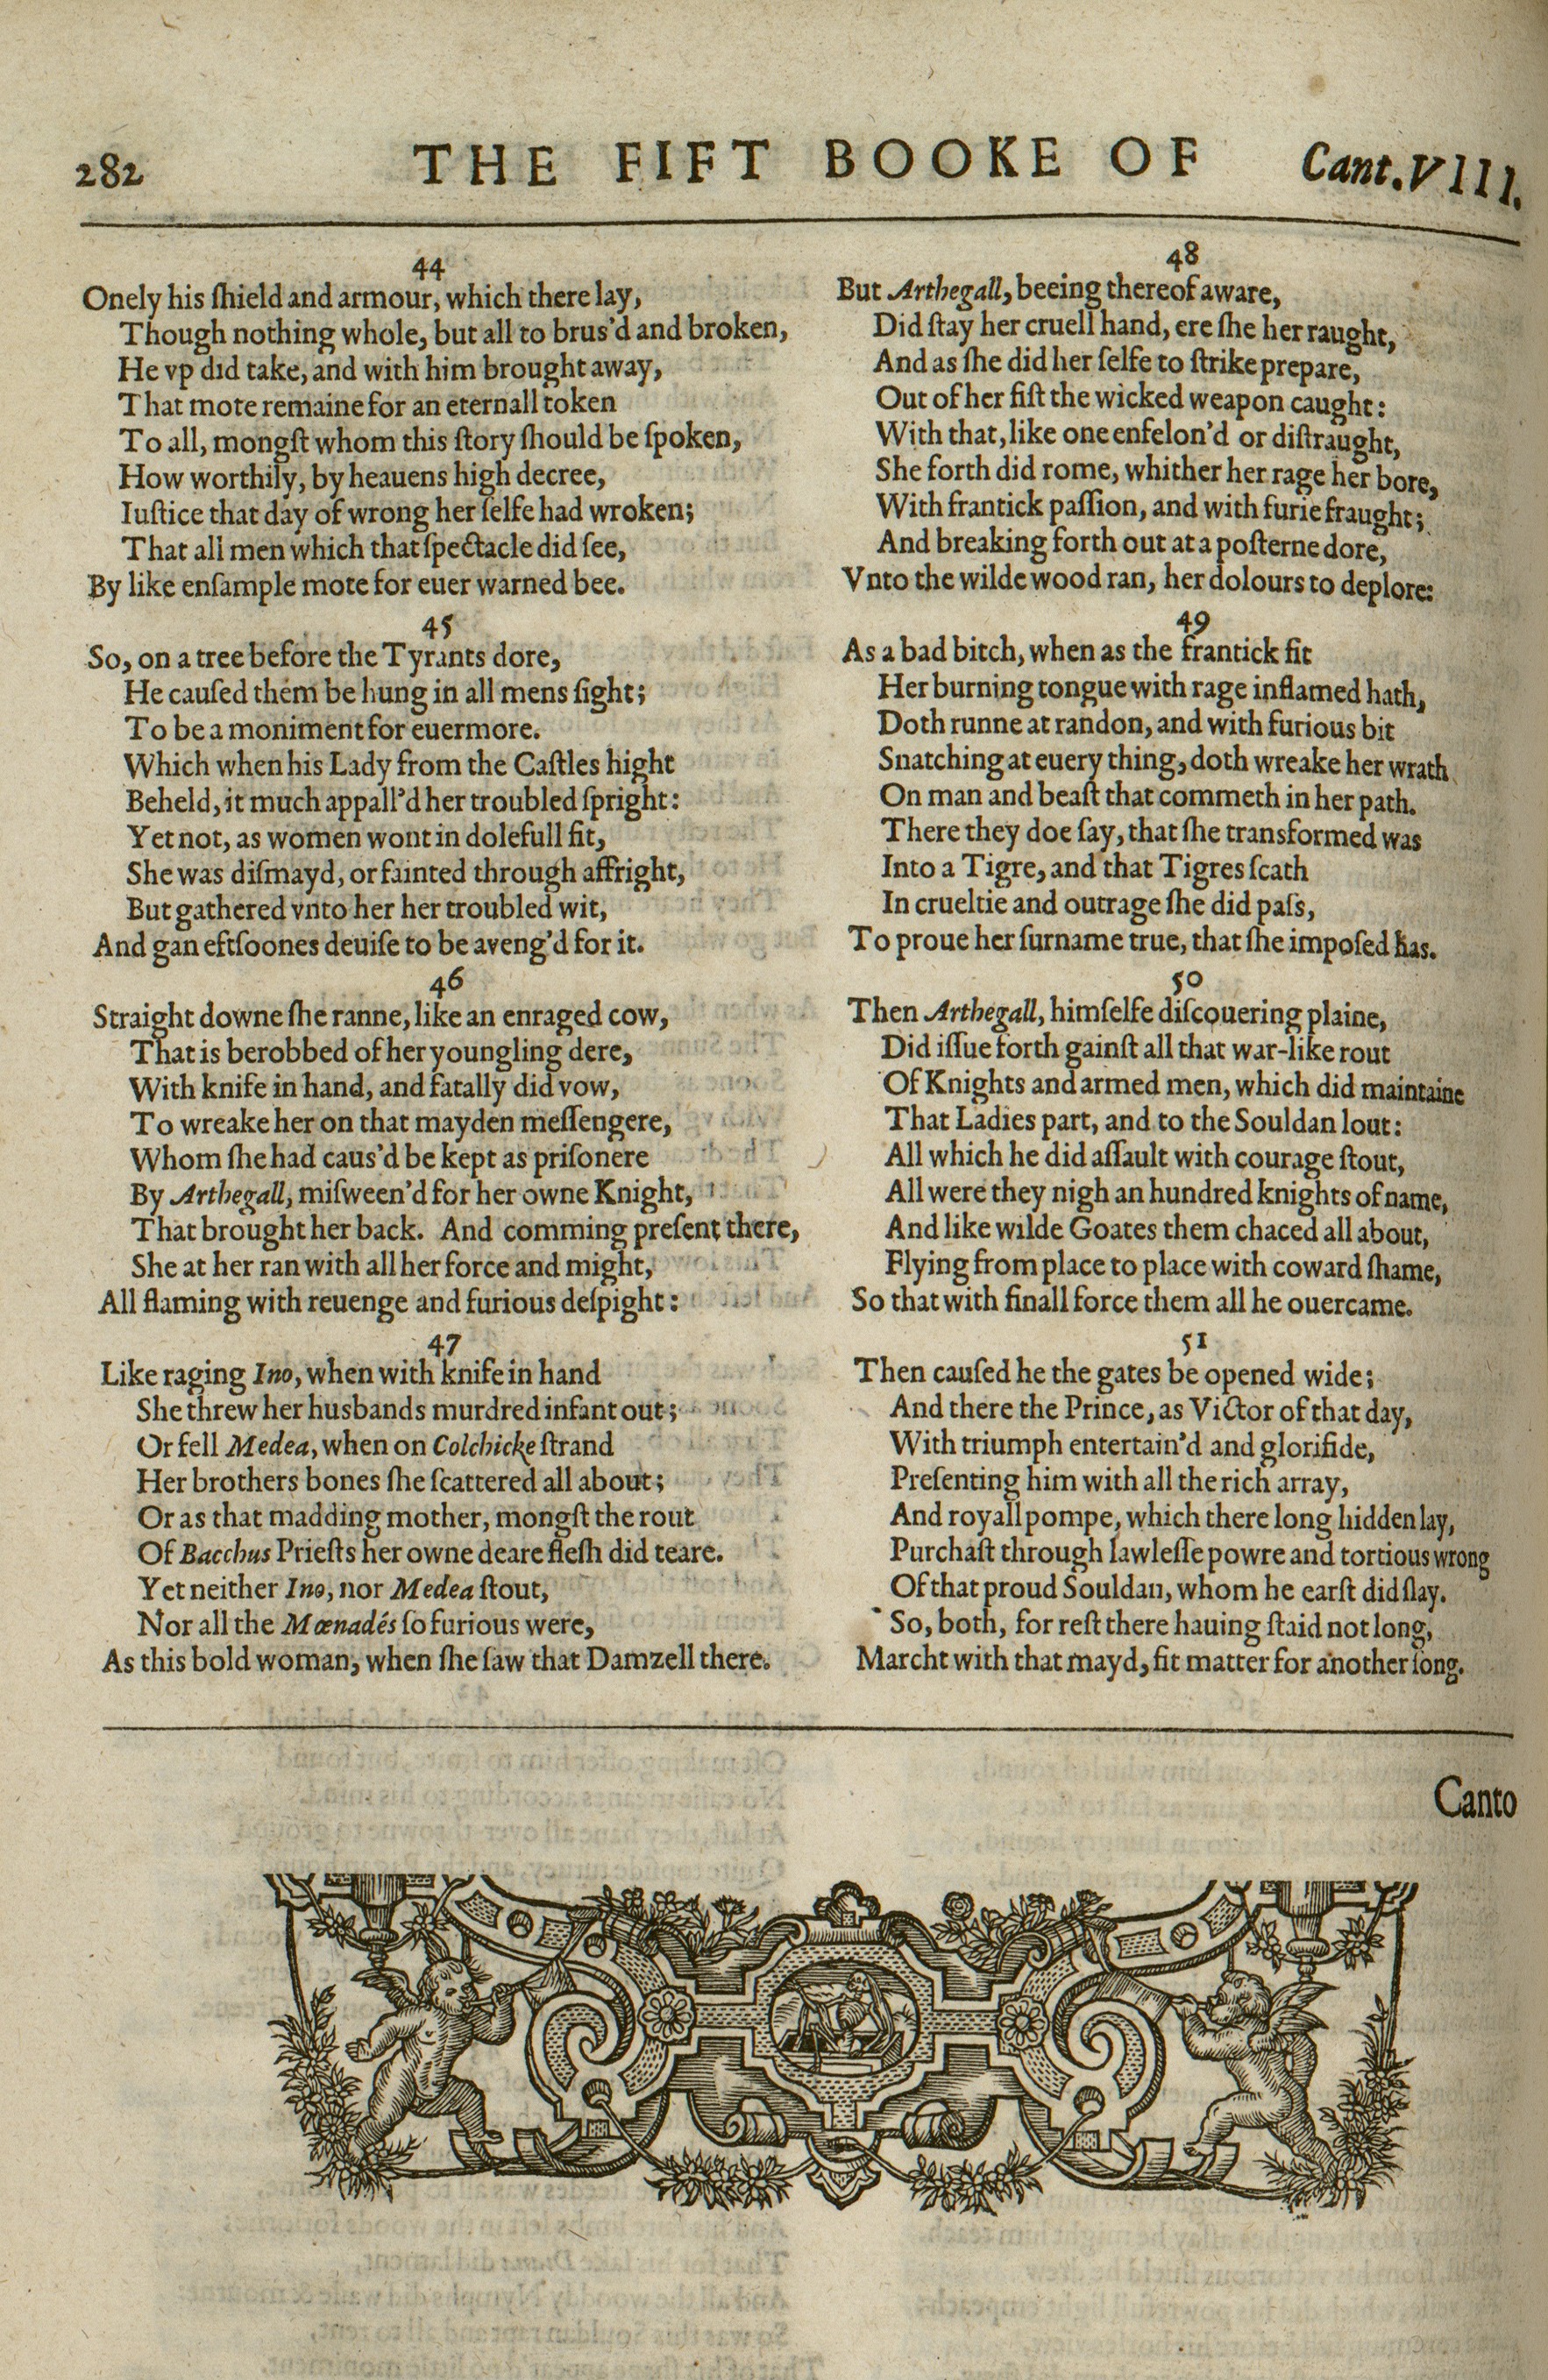 282 THE FIFT BOOKE OF Cant. VIII.
44
Onely his ſhield and armour, which there lay,
Though nothing whole, but all to brus'd and broken,
He vp did take, and with him brought away,
That mote remaine for an eternall token
To all, mongſt whom this ſtory ſhould be ſpoken,
How worthily, by heauens high decree,
Iuſtice that day of wrong her ſelfe had wroken;
That all men which that ſpectacle did ſee,
By like enſample mote for euer warned bee.
45
So, on a tree before the Tyrants dore,
He cauſed them be hung in all mens ſight;
To be a moniment for euermore.
Which when his Lady from the Caſtles hight
Beheld, it much appall'd her troubled ſpright:
Yet not, as women wont in dolefull fit,
She was diſmayd, or fainted through affright,
But gathered vnto her her troubled wit,
And gan eftſoones deuiſe to be aveng'd for it.
46
Straight downe ſhe ranne, like an enraged cow,
That is berobbed of her youngling dere,
With knife in hand, and fatally did vow,
To wreake her on that mayden meſſengere,
Whom ſhe had caus'd be kept as priſonere
By Arthegall, miſween'd for her owne Knight,
That brought her back. And comming preſent there,
She at her ran with all her force and might,
All flaming with reuenge and furious deſpight:
47
Like raging Ino, when with knife in hand
She threw her husbands murdred infant out;
Or fell Medea, when on Colchicke ſtrand
Her brothers bones ſhe ſcattered all about;
Or as that madding mother, mongſt the rout
Of Bacchus Prieſts her owne deare fleſh did teare.
Yet neither Ino, nor Medea ſtout,
Nor all the Mœnadés ſo furious were,
As this bold woman, when ſhe ſaw that Damzell there.
48
But Arthegall, beeing thereof aware,
Did ſtay her cruell hand, ere ſhe her raught,
And as ſhe did her ſelfe to ſtrike prepare,
Out of her fiſt the wicked weapon caught:
With that, like one enfelon'd or diſtraught,
She forth did rome, whither her rage her bore,
With frantick paſſion, and with furie fraught;
And breaking forth out at a poſterne dore,
Vnto the wilde wood ran, her dolours to deplore:
49
As a bad bitch, when as the frantick fit
Her burning tongue with rage inflamed hath,
Doth runne at randon, and with furious bit
Snatching at euery thing, doth wreake her wrath
On man and beaſt that commeth in her path.
There they doe ſay, that ſhe transformed was
Into a Tigre, and that Tigres ſcath
In crueltie and outrage ſhe did paſs,
To proue her ſurname true, that ſhe impoſed has.
50
Then Arthegall, himſelfe diſcouering plaine,
Did iſſue forth gainſt all that war-like rout
Of Knights and armed men, which did maintaine
That Ladies part, and to the Souldan lout:
All which he did aſſault with courage ſtout,
All were they nigh an hundred knights of name,
And like wilde Goates them chaced all about,
Flying from place to place with coward ſhame,
So that with finall force them all he ouercame.
51
Then cauſed he the gates be opened wide;
And there the Prince, as Victor of that day,
With triumph entertain'd and glorifide,
Preſenting him with all the rich array,
And royall pompe, which there long hidden lay,
Purchaſt through lawleſſe powre and tortious wrong
Of that proud Souldan, whom he earſt did ſlay.
So, both, for reſt there hauing ſtaid not long,
Marcht with that mayd, fit matter for another ſong.
Canto